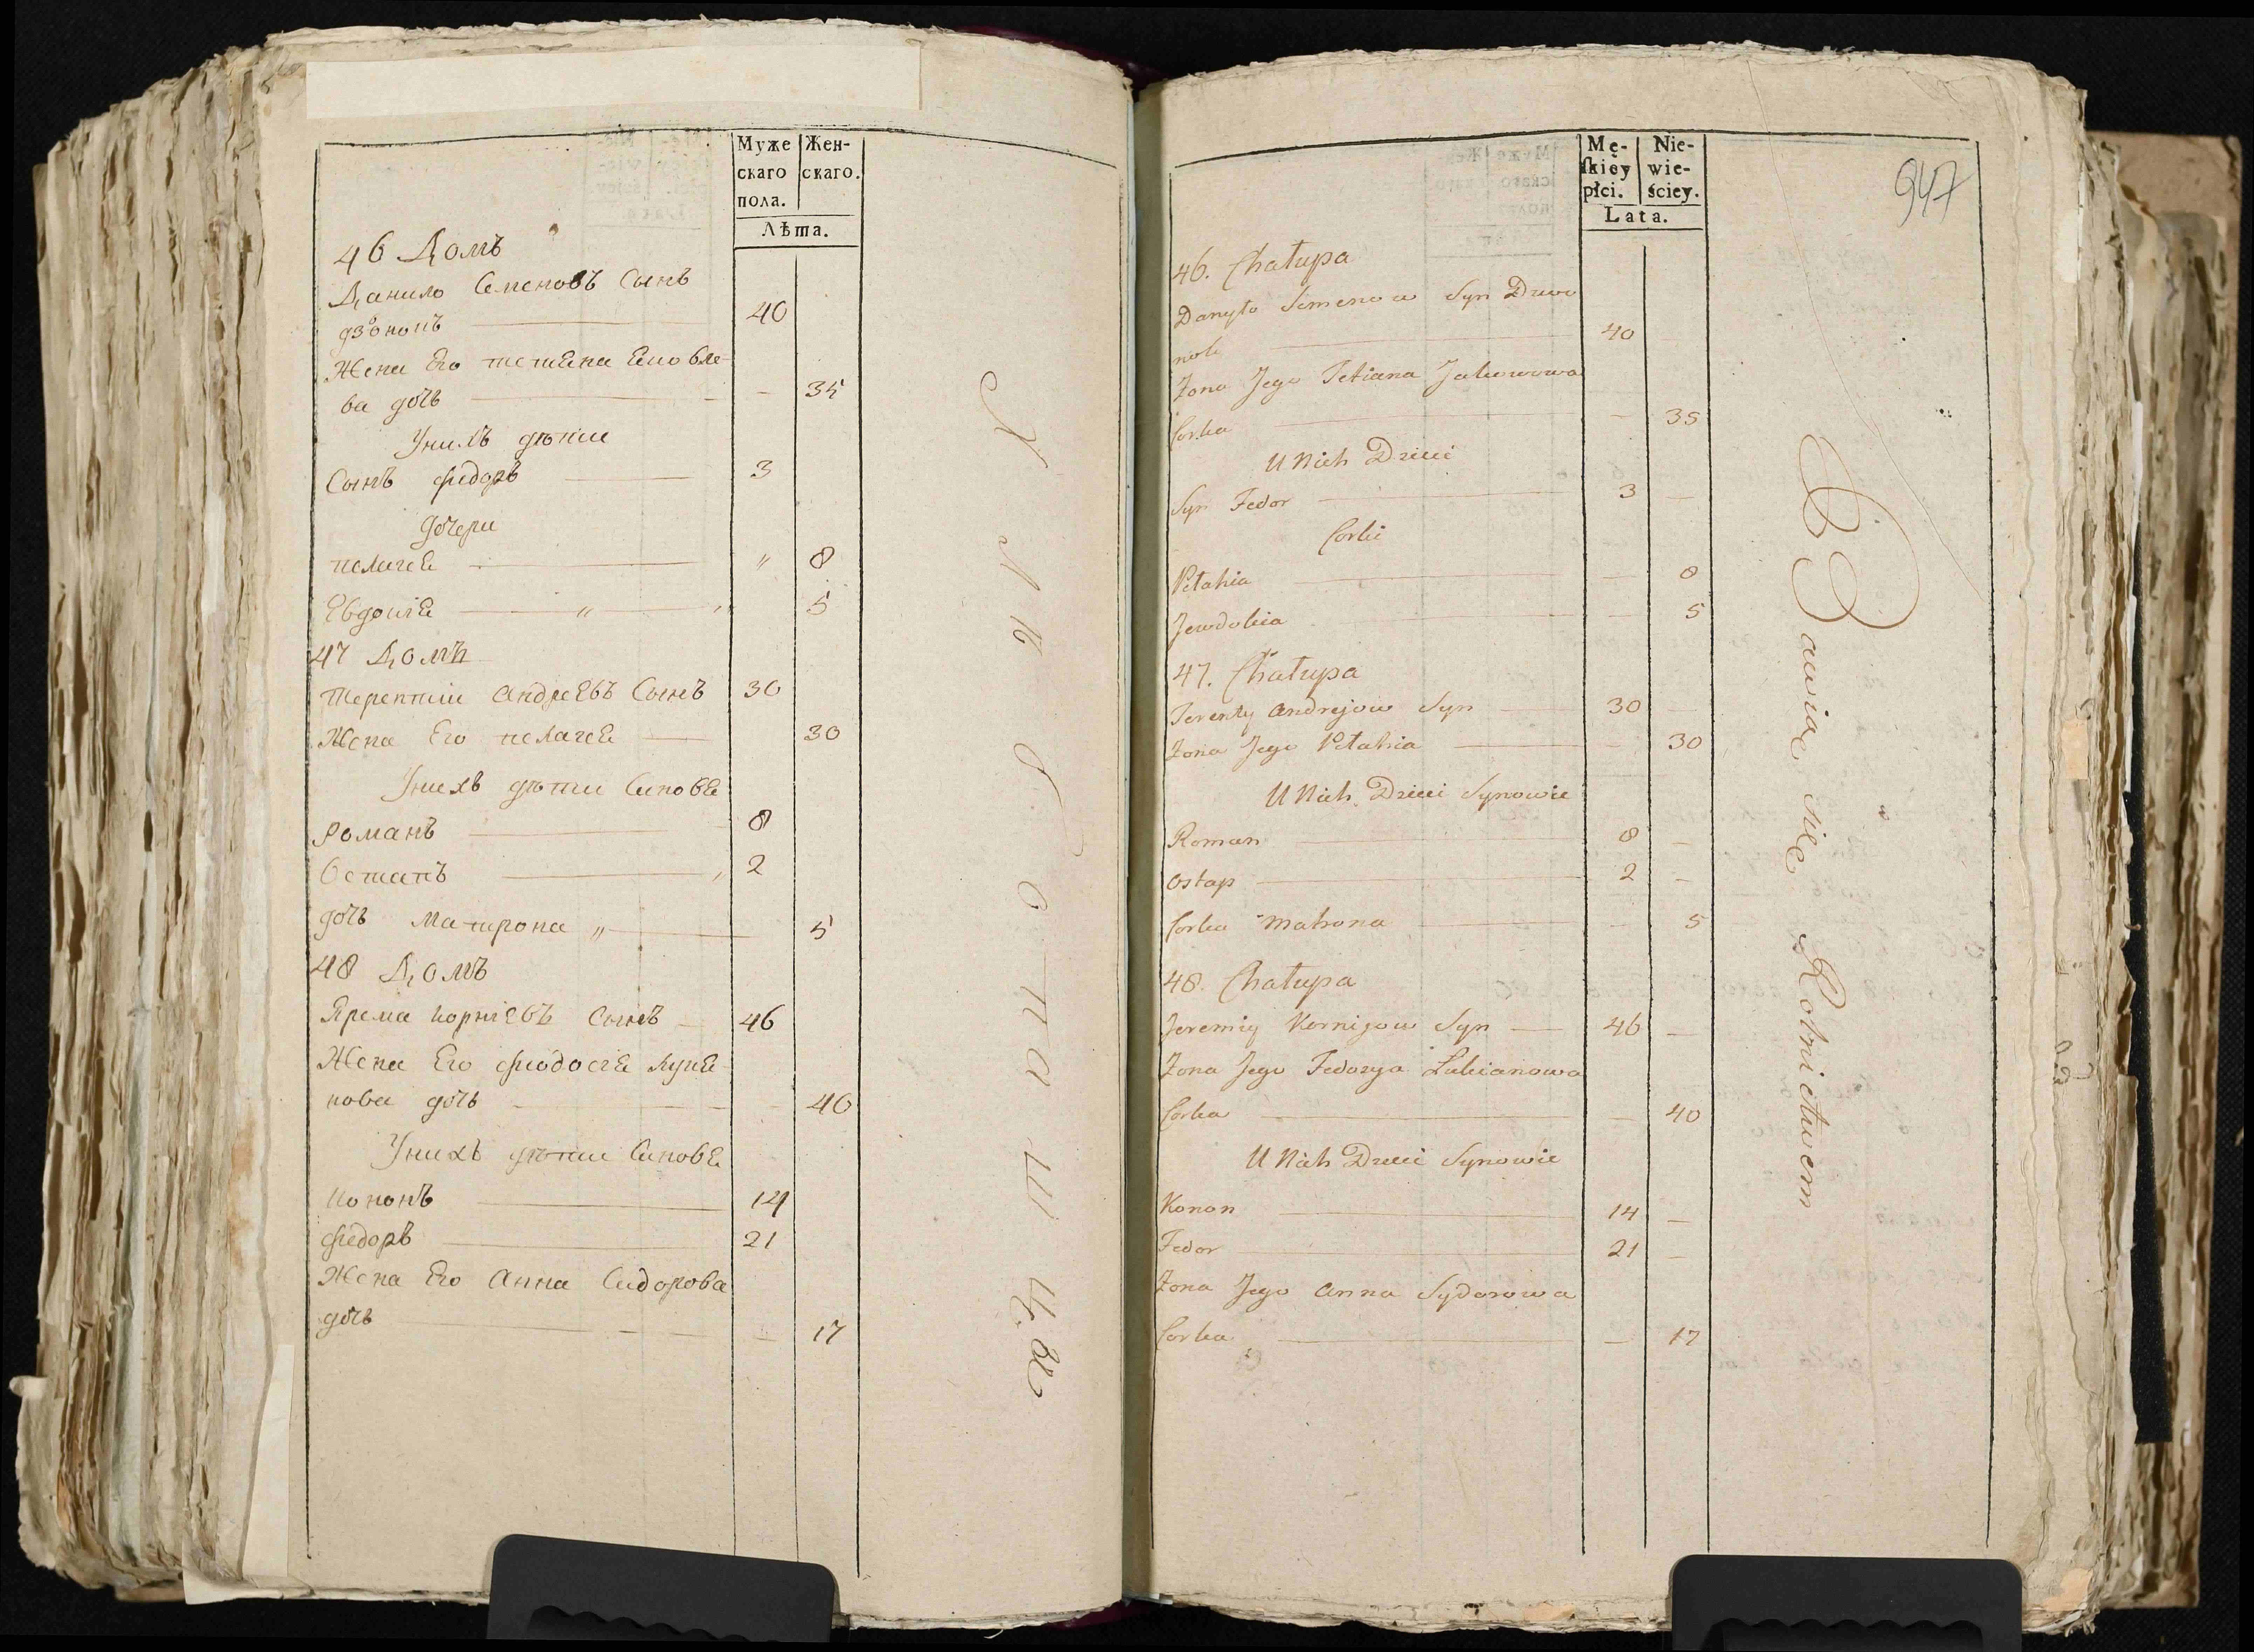 Муже
скаго
пола.
Жен-
скаго.
Лѣта.
46 Домъ
Данило Семеновъ Сынъ
дзвонопъ 40
Жена Его
ва дочь 35
Унихъ дѣти
Сынъ федоръ 3
дочери
пелагея " 8
Евдокія " " 5
47 Домъ
Терентии андреевъ Сынъ 30
Жена Его пелагея 30
Унихъ дѣти Синовя
Романъ 8
Остапъ 2
дочь Матрона " 5
48 Домъ
Ярема Корніевъ Сынъ 46
Жена Его феодосія Лукя-
нова дочь 40
Унихъ дѣти Синовя
Кононъ 14
федоръ 21
Жена Его Анна Сидорова
дочь 17
Mę-
skiey
płci.
Nie-
wie-
ściey.
Lata.
947
46. Chałupa
Danyło Simenow Syn Dzwo
nok 40
Żona Jego Tetiana Jakowowa
Corka 35
U Nich Dzieci
Syn Fedor 3
Corki
Pełahia 8
Jewdokia 5
47. Chałupa
Terenty Andrejow Syn 30
Żona Jego Pełahia 30
U Nich Dzieci Synowie
Roman 8
Ostap 2
Corka Matrona 5
48. Chałupa
Jeremiy Kornijow Syn 46
Żona Jego Fedosya Łukianowa
Corka 40
U Nich Dzieci Synowie
Konon 14
Fedor 21
Żona Jego Anna Sydorowa
Corka 17
Bawią się Rolnictwem